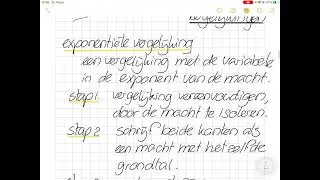 vergelijkingen
exponentiële vergelijking
een vergelijking met de variabele
in de exponent van de macht.
stap 1 vergelijking vereenvoudigen,
door de macht te isoleren.
stap 2 schrijf beide kanten als
een macht met het zelfde
grondtal.